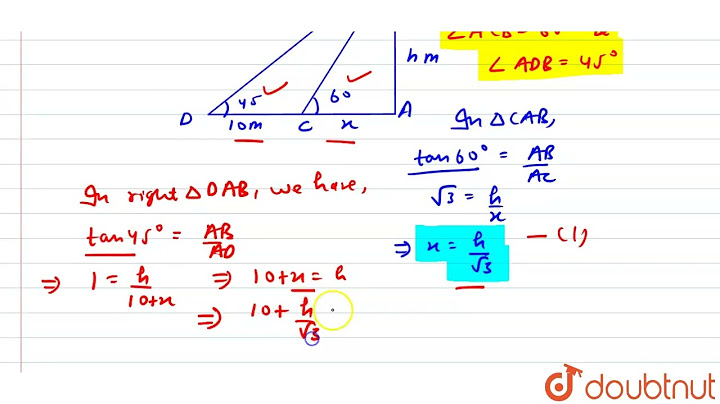 ∠ADB = 45°
h m
45
60
D
10m
C
x
A
In △CAB,
tan60° = AB/AC
√3 = h/x
⇒ x = h/√3 — (1)
In right △DAB, we have,
tan45° = AB/AD
⇒ 1 = h/10+x ⇒ 10+x = h
⇒ 10 + h/√3
doubtnut